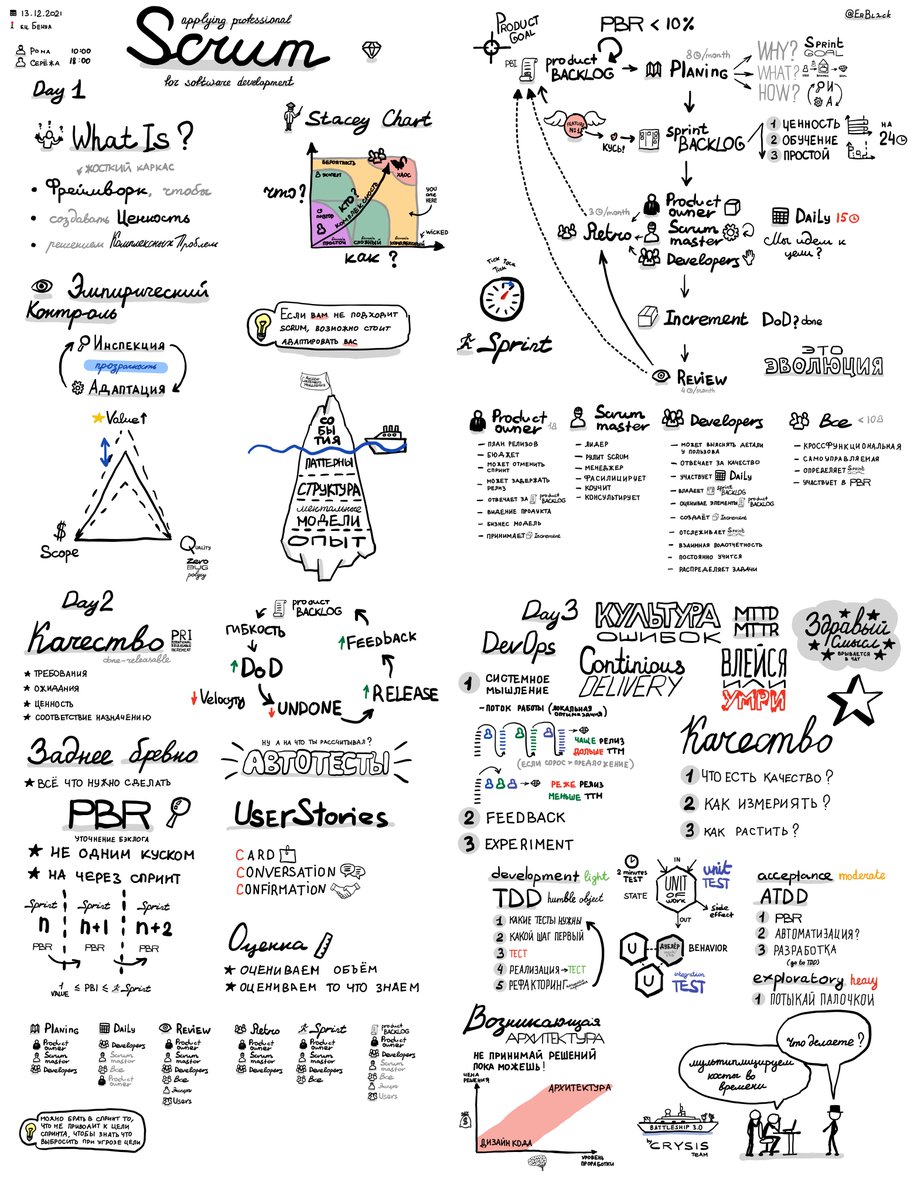 13.12.2021
applying professional
Scrum
for software development
Рома 10:00
Серёжа 18:00
@ErBl4ck
Day 1
What Is?
жосткий каркас
• Фреймворк, чтобы
• создавать Ценность
• решением Комплексных Проблем
Stacey Chart
что?
вероятность
эксперт
хаос
кто?
комплексность
простой
сложный
you are here
wicked
как?
Эмпирический
Контроль
Инспекция
прозрачность
Адаптация
Если вам не подходит
scrum, возможно стоит
адаптировать вас
Value↑
$
Scope
Quality
zero
bug
policy
события
паттерны
структура
ментальные
модели
опыт
Product
Goal
PBR < 10%
PBI
product
BACKLOG
8 /month
Planing
WHY? Sprint GOAL
WHAT?
HOW? И А
FEATURE №1
кусь!
sprint
BACKLOG
1 ценность
2 обучение
3 простой
на
24
3 /month
Retro
Product owner
Scrum master
Developers
Daily 15
Мы идем к
цели?
Tick Tock Tick
Sprint
Increment DoD? done
Review
4 /month
это
эволюция
Product owner 1
– план релизов
– бюджет
– может отменить
спринт
– может задержать
релиз
– отвечает за product BACKLOG
– видение продукта
– бизнес модель
– принимает Increment
Scrum master
– лидер
– рулит scrum
– менеджер
– фасилицирует
– коучит
– консультирует
Developers
– может выяснять детали
у пользова
– отвечает за качество
– участвует Daily
– владеет Sprint BACKLOG
– оценивае элементы product BACKLOG
– создаёт Increment
– отслеживает Sprint
– взаимная подотчётность
– постоянно учится
– распределяет задачи
Все <10
– кроссфункциональная
– самоуправляемая
– определяет Sprint
– участвует в PBR
Day2
Качество PRI
done-releasable
★ требования
★ ожидания
★ ценность
★ соответствие назначению
product BACKLOG
гибкость
↑DoD
↓Velocity
↓UNDONE
↑RELEASE
↑Feedback
Заднее бревно
★ всё что нужно сделать
ну а на что ты рассчитывал?
АВТОТЕСТЫ
PBR
уточнение бэклога
★ не одним куском
★ на через спринт
Sprint Sprint Sprint
n n+1 n+2
PBR PBR PBR
1 value ≤ PBI ≤ Sprint
UserStories
CARD
CONVERSATION
CONFIRMATION
Оценка
★ оцениваем объём
★ оцениваем то что знаем
Planing
Product owner
Scrum master
Developers
Daily
Developers
Scrum master
Все
Product owner
Review
Product owner
Scrum master
Developers
Все
Users
Retro
Product owner
Scrum master
Developers
Sprint
Product owner
Scrum master
Developers
Все
product BACKLOG
Product owner
Developers
Scrum master
Все
Users
можно брать в спринт то,
что не приводит к цели
спринта, чтобы знать что
выбросить при угрозе цели
Day3
DevOps
КУЛЬТУРА
ОШИБОК
MTTD
MTTR
Здравый
Смысл
врывается
в чат
Continious
DELIVERY
ВЛЕЙСЯ
ИЛИ
УМРИ
1 системное
мышление
–поток работы (локальная
оптимизация)
чаще релиз
дольше TTM
(если спрос > предложение)
реже релиз
меньше TTM
2 FEEDBACK
3 EXPERIMENT
Качество
1 что есть качество?
2 как измериять?
3 как растить?
development light
TDD humble object
1 какие тесты нужны
2 какой шаг первый
3 тест
4 реализация→тест
5 рефакторинг
2 minutes
TEST
STATE
IN
UNIT
OF
work
OUT
unit
TEST
side
effect
U
дублёр
U
BEHAVIOR
integration
TEST
acceptance moderate
ATDD
1 PBR
2 автоматизация?
3 разработка
(go to TDD)
exploratory heavy
1 потыкай палочкой
Возникающая
архитектура
не принимай решений
пока можешь!
цена
решения
архитектура
дизайн кода
уровень
проработки
Что делаете?
мультиплицируем
косты во
времени
BATTLESHIP 3.0
by CRYSIS
TEAM